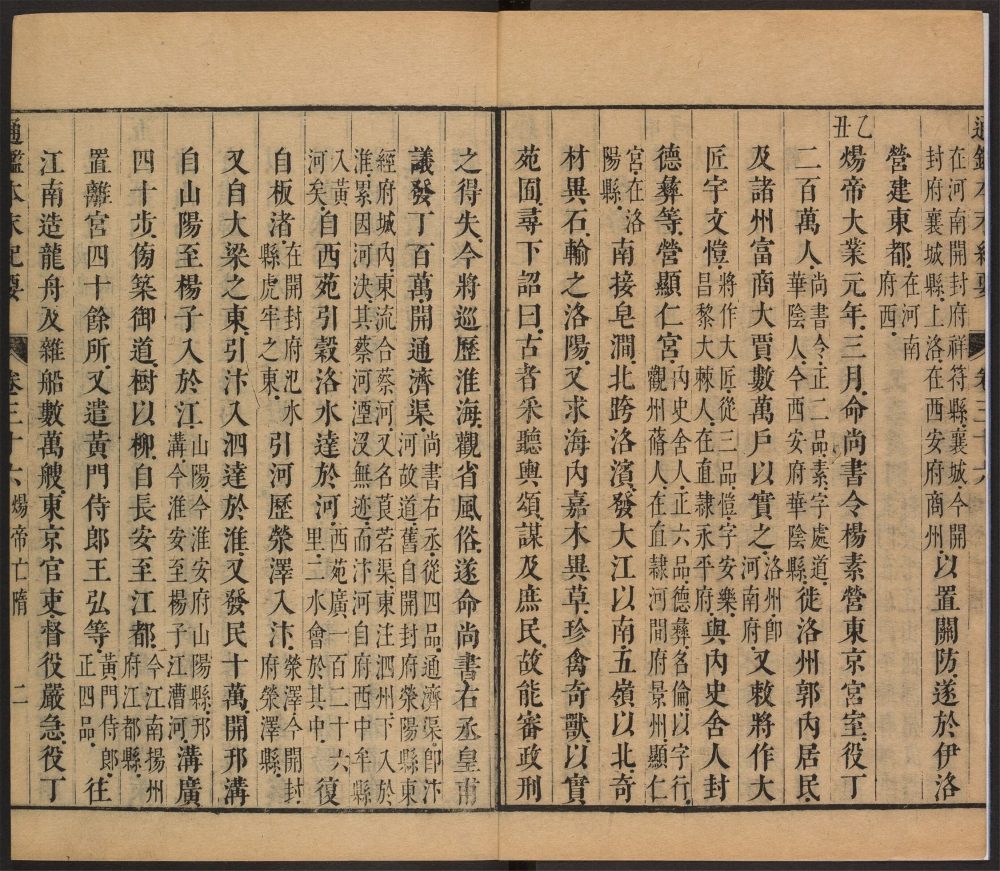 通鑑本末紀要 卷三十六
在河南開封府祥符縣襄城今開封府襄城縣上洛在西安府商州以置關防遂於伊洛
營建東都在河南府西
乙丑
煬帝大業元年三月命尚書令楊素營東京宮室役丁
二百萬人尚書令正二品素字處道華陰人今西安府華陰縣徙洛州郭內居民
及諸州富商大賈數萬戶以實之洛州卽河南府又敕將作大
匠宇文愷將作大匠從三品愷字安樂昌黎大棘人在直隸永平府與內史舍人封
德彝等營顯仁宮內史舍人正六品德彝名倫以字行觀州蓨人在直隸河間府景州顯仁
宮在洛陽縣南接皂澗北跨洛濱發大江以南五嶺以北奇
材異石輸之洛陽又求海內嘉木異草珍禽奇獸以實
苑囿尋下詔曰古者采聽輿頌謀及庶民故能審政刑
之得失今將巡歷淮海觀省風俗遂命尚書右丞皇甫
議發丁百萬開通濟渠尚書右丞從四品通濟渠卽汴河故道舊自開封府滎陽縣東
經府城內東流合蔡河又名莨菪渠東注泗州下入於淮累因河決其蔡河湮沒無迹而汴河自府西中牟縣
入黃河矣自西苑引穀洛水達於河西苑廣一百二十六里二水會於其中復
自板渚在開封府汜水縣虎牢之東引河歷滎澤入汴滎澤今開封府滎澤縣
又自大梁之東引汴入泗達於淮又發民十萬開邗溝
自山陽至楊子入於江山陽今淮安府山陽縣邗溝今淮安至楊子江漕河溝廣
四十步傍築御道樹以柳自長安至江都今江南揚州府江都縣
置離宮四十餘所又遣黃門侍郎王弘等黃門侍郎正四品往
江南造龍舟及雜船數萬艘東京官吏督役嚴急役丁
通鑑本末紀要 卷三十六 煬帝亡隋 二